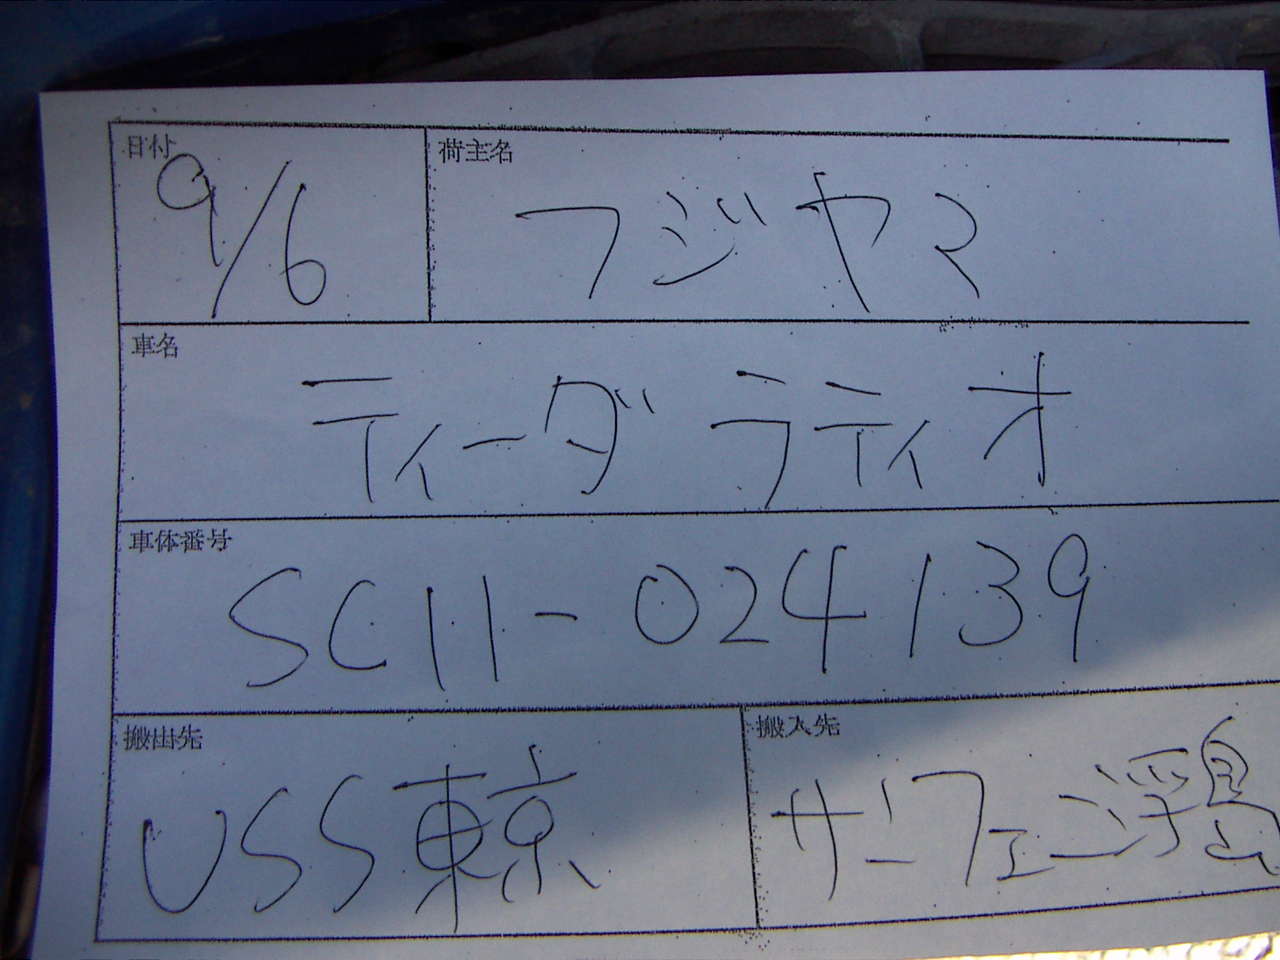 日付 荷主名
9/6 フジヤマ
車名
ティーダ ラティオ
車体番号
SC11-024139
搬出先 搬入先
USS東京 サニフェニ浮島